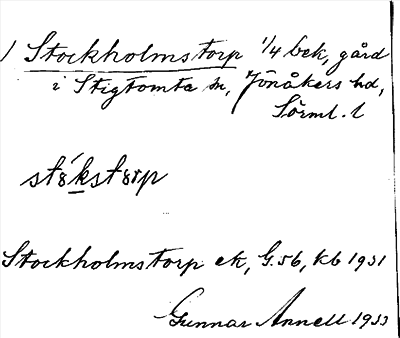 / Stockholmstorp 1/4 bek, gård
i Stigtomta sn, Jönåkers hd,
Sörml. l
stȣ́kstȣrp
Stockholmstorp ek, G.5b, kb 1931
Gunnar Annell 1933